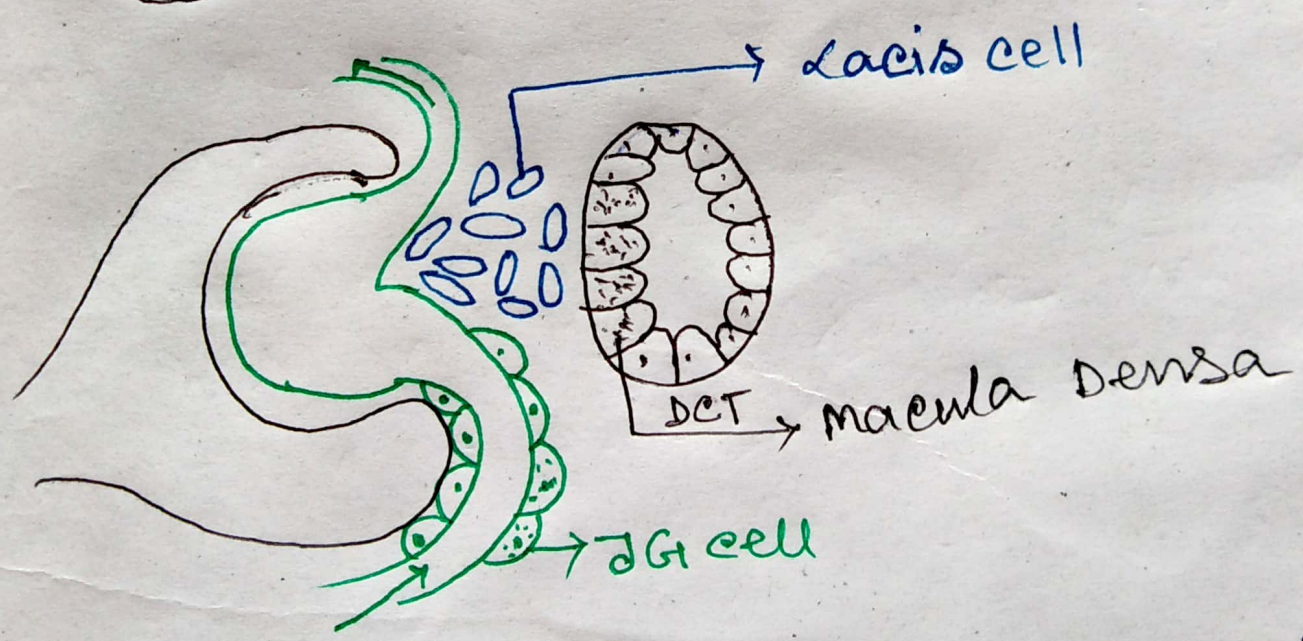 Lacis cell
DCT
Macula Densa
JG cell